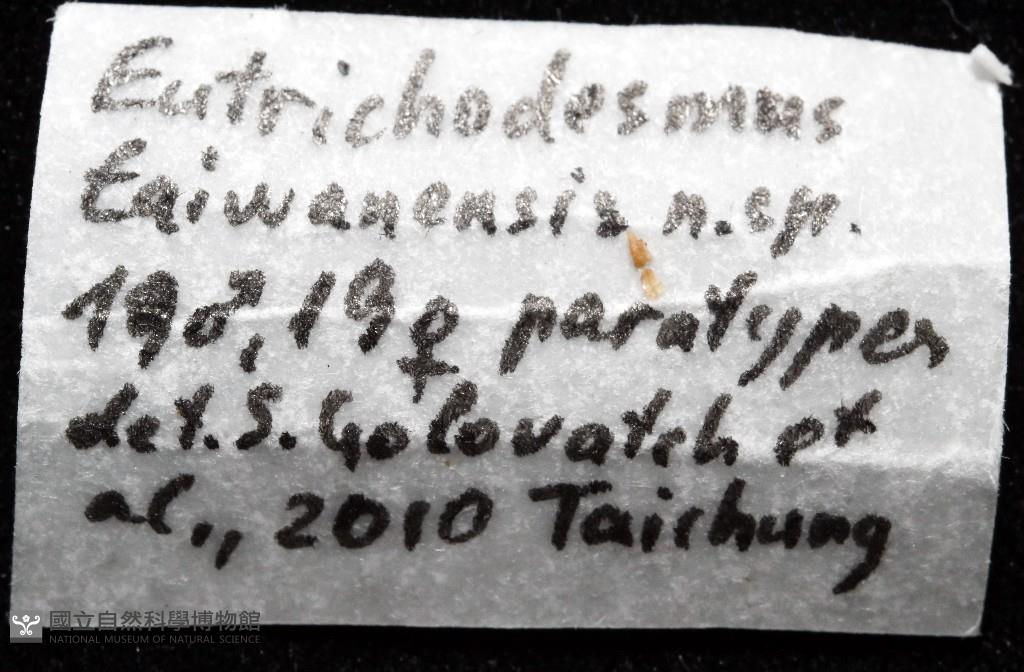 Eutrichodesmus
taiwanensis n.sp.
19♂, 19♀ paratypes
det. S. Golovatch et
al., 2010 Taichung
國立自然科學博物館
NATIONAL MUSEUM OF NATURAL SCIENCE